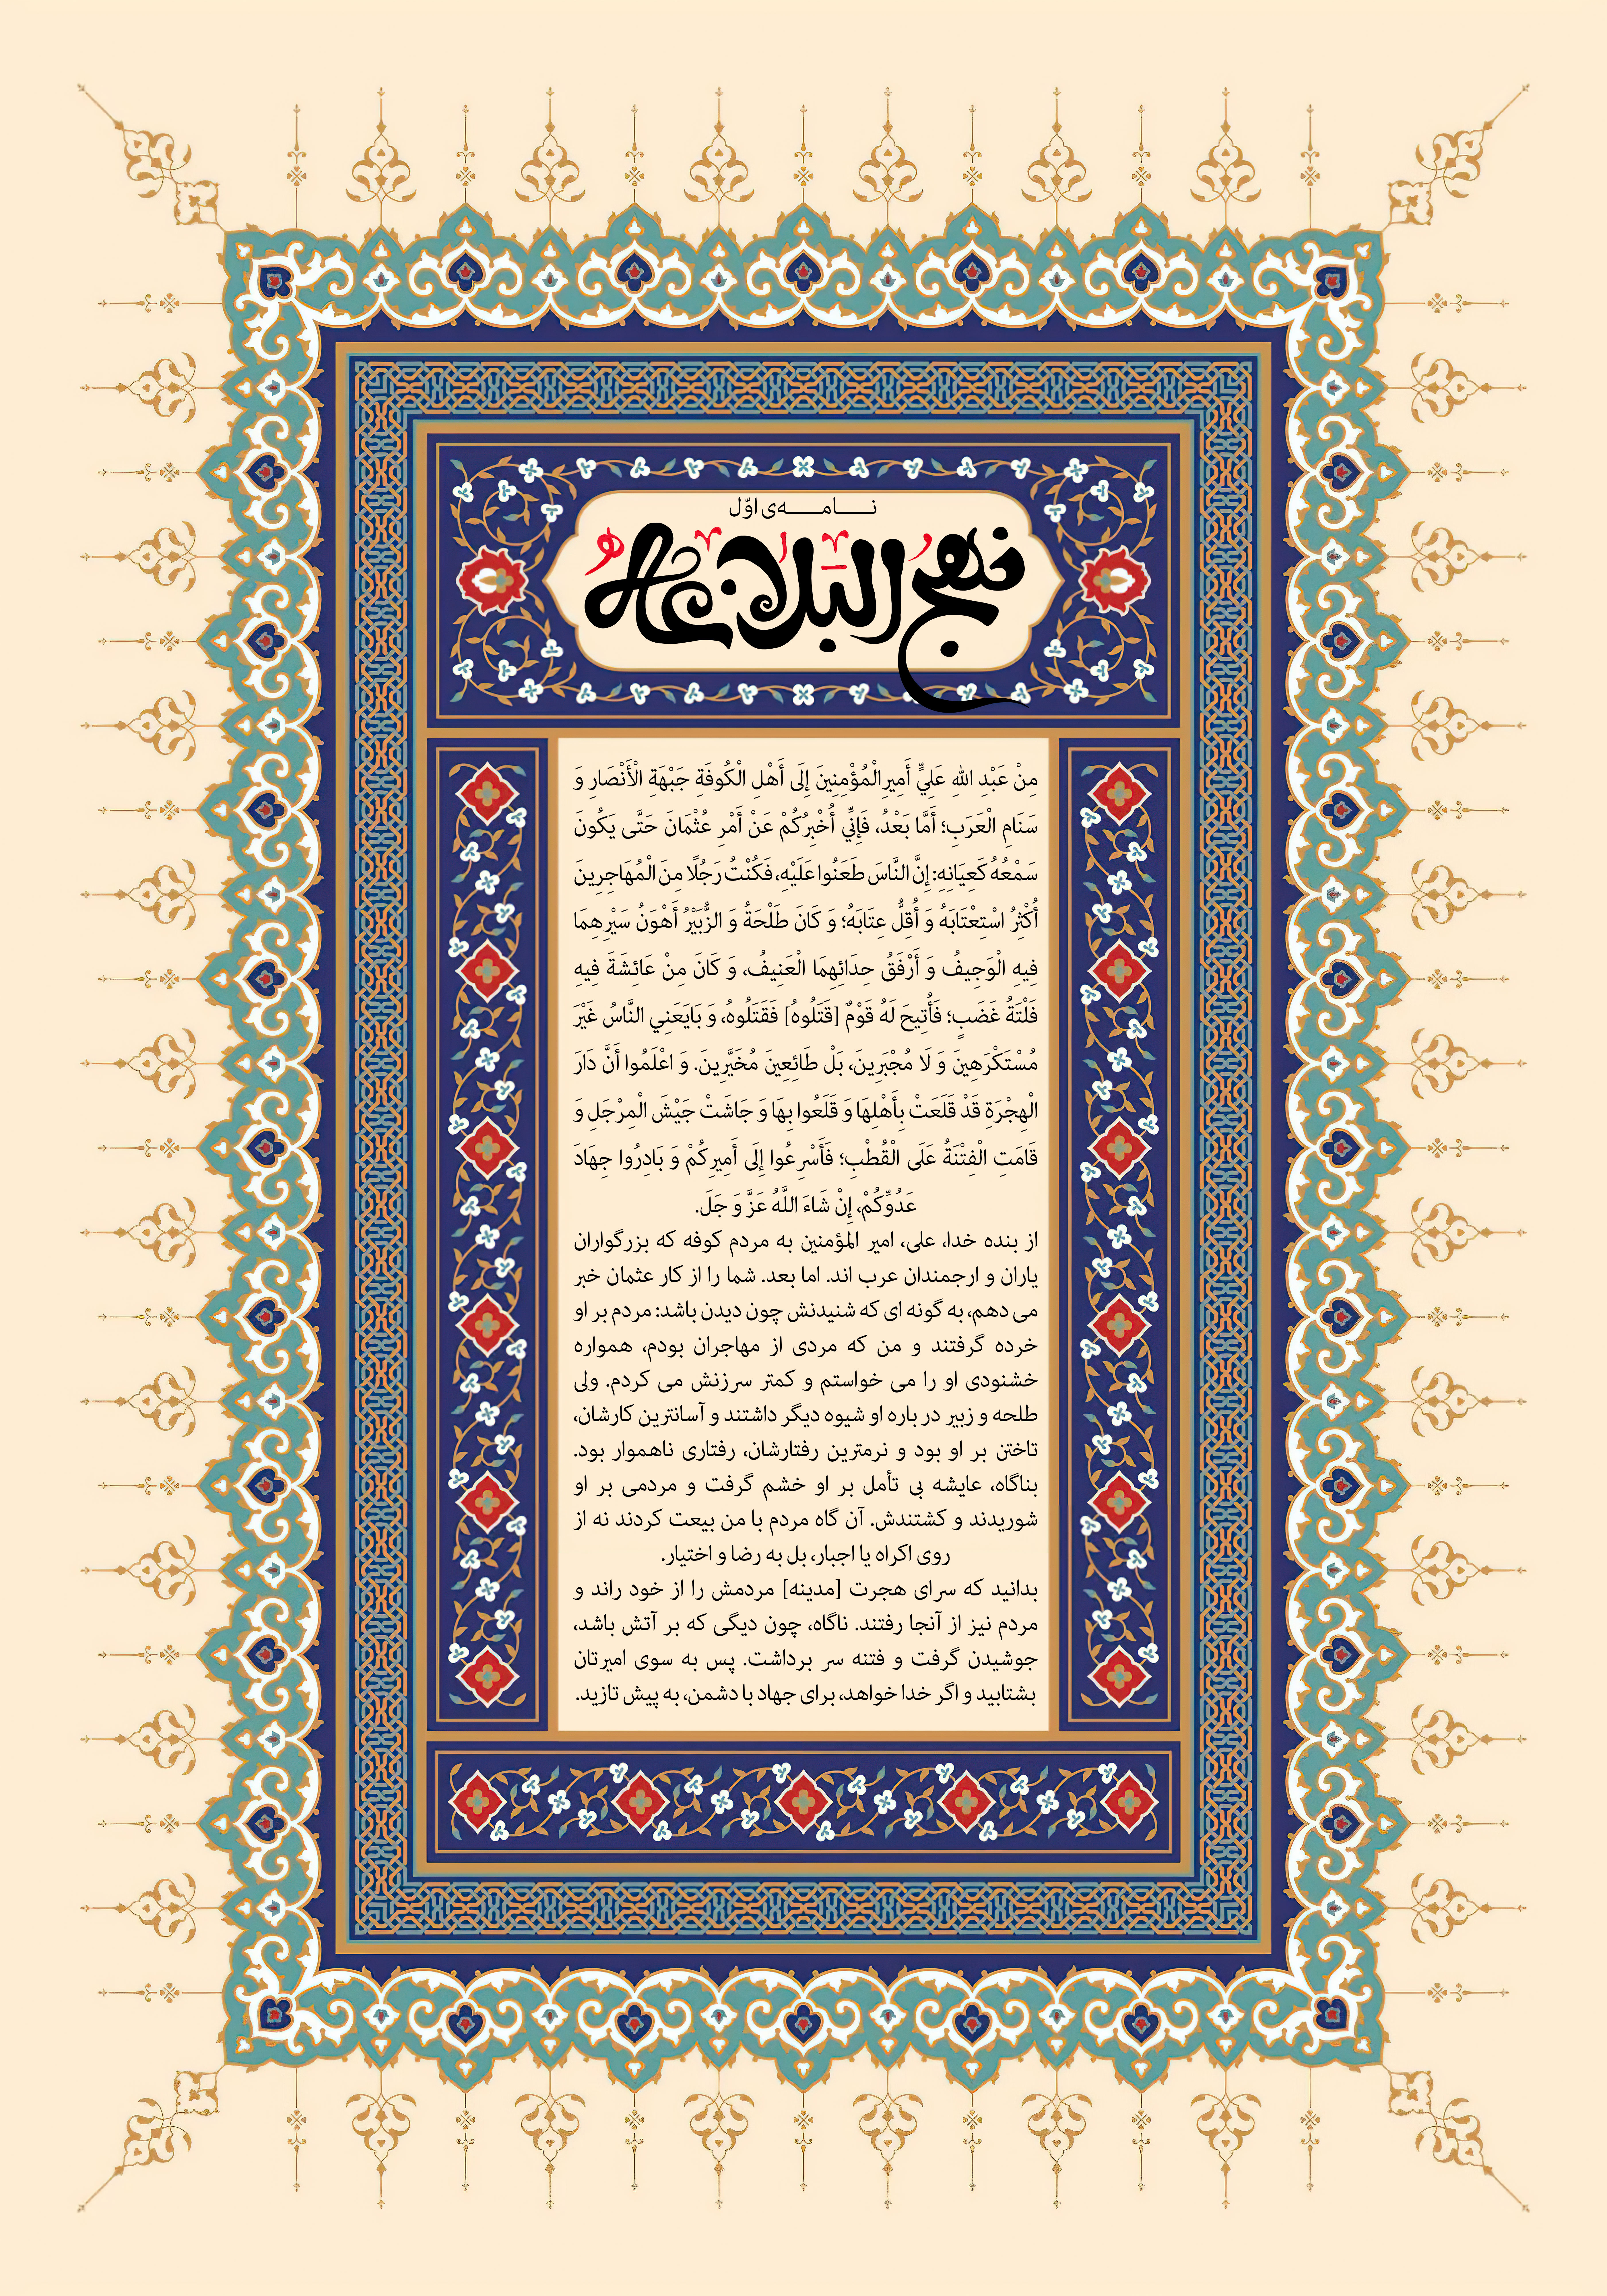 نـــامـــه‌ی اوّل
نهج البلاغه
مِنْ عَبْدِ اللهِ عَلِيٍّ أَمِيرِالْمُؤْمِنِينَ إِلَى أَهْلِ الْكُوفَةِ جَبْهَةِ الْأَنْصَارِ وَ
سَنَامِ الْعَرَبِ؛ أَمَّا بَعْدُ، فَإِنِّي أُخْبِرُكُمْ عَنْ أَمْرِ عُثْمَانَ حَتَّى يَكُونَ
سَمْعُهُ كَعِيَانِهِ: إِنَّ النَّاسَ طَعَنُوا عَلَيْهِ، فَكُنْتُ رَجُلًا مِنَ الْمُهَاجِرِينَ
أُكْثِرُ اسْتِعْتَابَهُ وَ أُقِلُّ عِتَابَهُ؛ وَ كَانَ طَلْحَةُ وَ الزُّبَيْرُ أَهْوَنُ سَيْرِهِمَا
فِيهِ الْوَجِيفُ وَ أَرْفَقُ حِدَائِهِمَا الْعَنِيفُ، وَ كَانَ مِنْ عَائِشَةَ فِيهِ
فَلْتَةُ غَضَبٍ؛ فَأُتِيحَ لَهُ قَوْمٌ [قَتَلُوهُ] فَقَتَلُوهُ، وَ بَايَعَنِي النَّاسُ غَيْرَ
مُسْتَكْرَهِينَ وَ لَا مُجْبَرِينَ، بَلْ طَائِعِينَ مُخَيَّرِينَ. وَ اعْلَمُوا أَنَّ دَارَ
الْهِجْرَةِ قَدْ قَلَعَتْ بِأَهْلِهَا وَ قَلَعُوا بِهَا وَ جَاشَتْ جَيْشَ الْمِرْجَلِ وَ
قَامَتِ الْفِتْنَةُ عَلَى الْقُطْبِ؛ فَأَسْرِعُوا إِلَى أَمِيرِكُمْ وَ بَادِرُوا جِهَادَ
عَدُوِّكُمْ، إِنْ شَاءَ اللَّهُ عَزَّ وَ جَلَ.
از بنده خدا، علی، امیر المؤمنین به مردم کوفه که بزرگواران
یاران و ارجمندان عرب اند. اما بعد. شما را از کار عثمان خبر
می دهم، به گونه ای که شنیدنش چون دیدن باشد: مردم بر او
خرده گرفتند و من که مردی از مهاجران بودم، همواره
خشنودی او را می خواستم و کمتر سرزنش می کردم. ولی
طلحه و زبیر در باره او شیوه دیگر داشتند و آسانترین کارشان،
تاختن بر او بود و نرمترین رفتارشان، رفتاری ناهموار بود.
بناگاه، عایشه بی تأمل بر او خشم گرفت و مردمی بر او
شوریدند و کشتندش. آن گاه مردم با من بیعت کردند نه از
روی اکراه یا اجبار، بل به رضا و اختیار.
بدانید که سرای هجرت [مدینه] مردمش را از خود راند و
مردم نیز از آنجا رفتند. ناگاه، چون دیگی که بر آتش باشد،
جوشیدن گرفت و فتنه سر برداشت. پس به سوی امیرتان
بشتابید و اگر خدا خواهد، برای جهاد با دشمن، به پیش تازید.